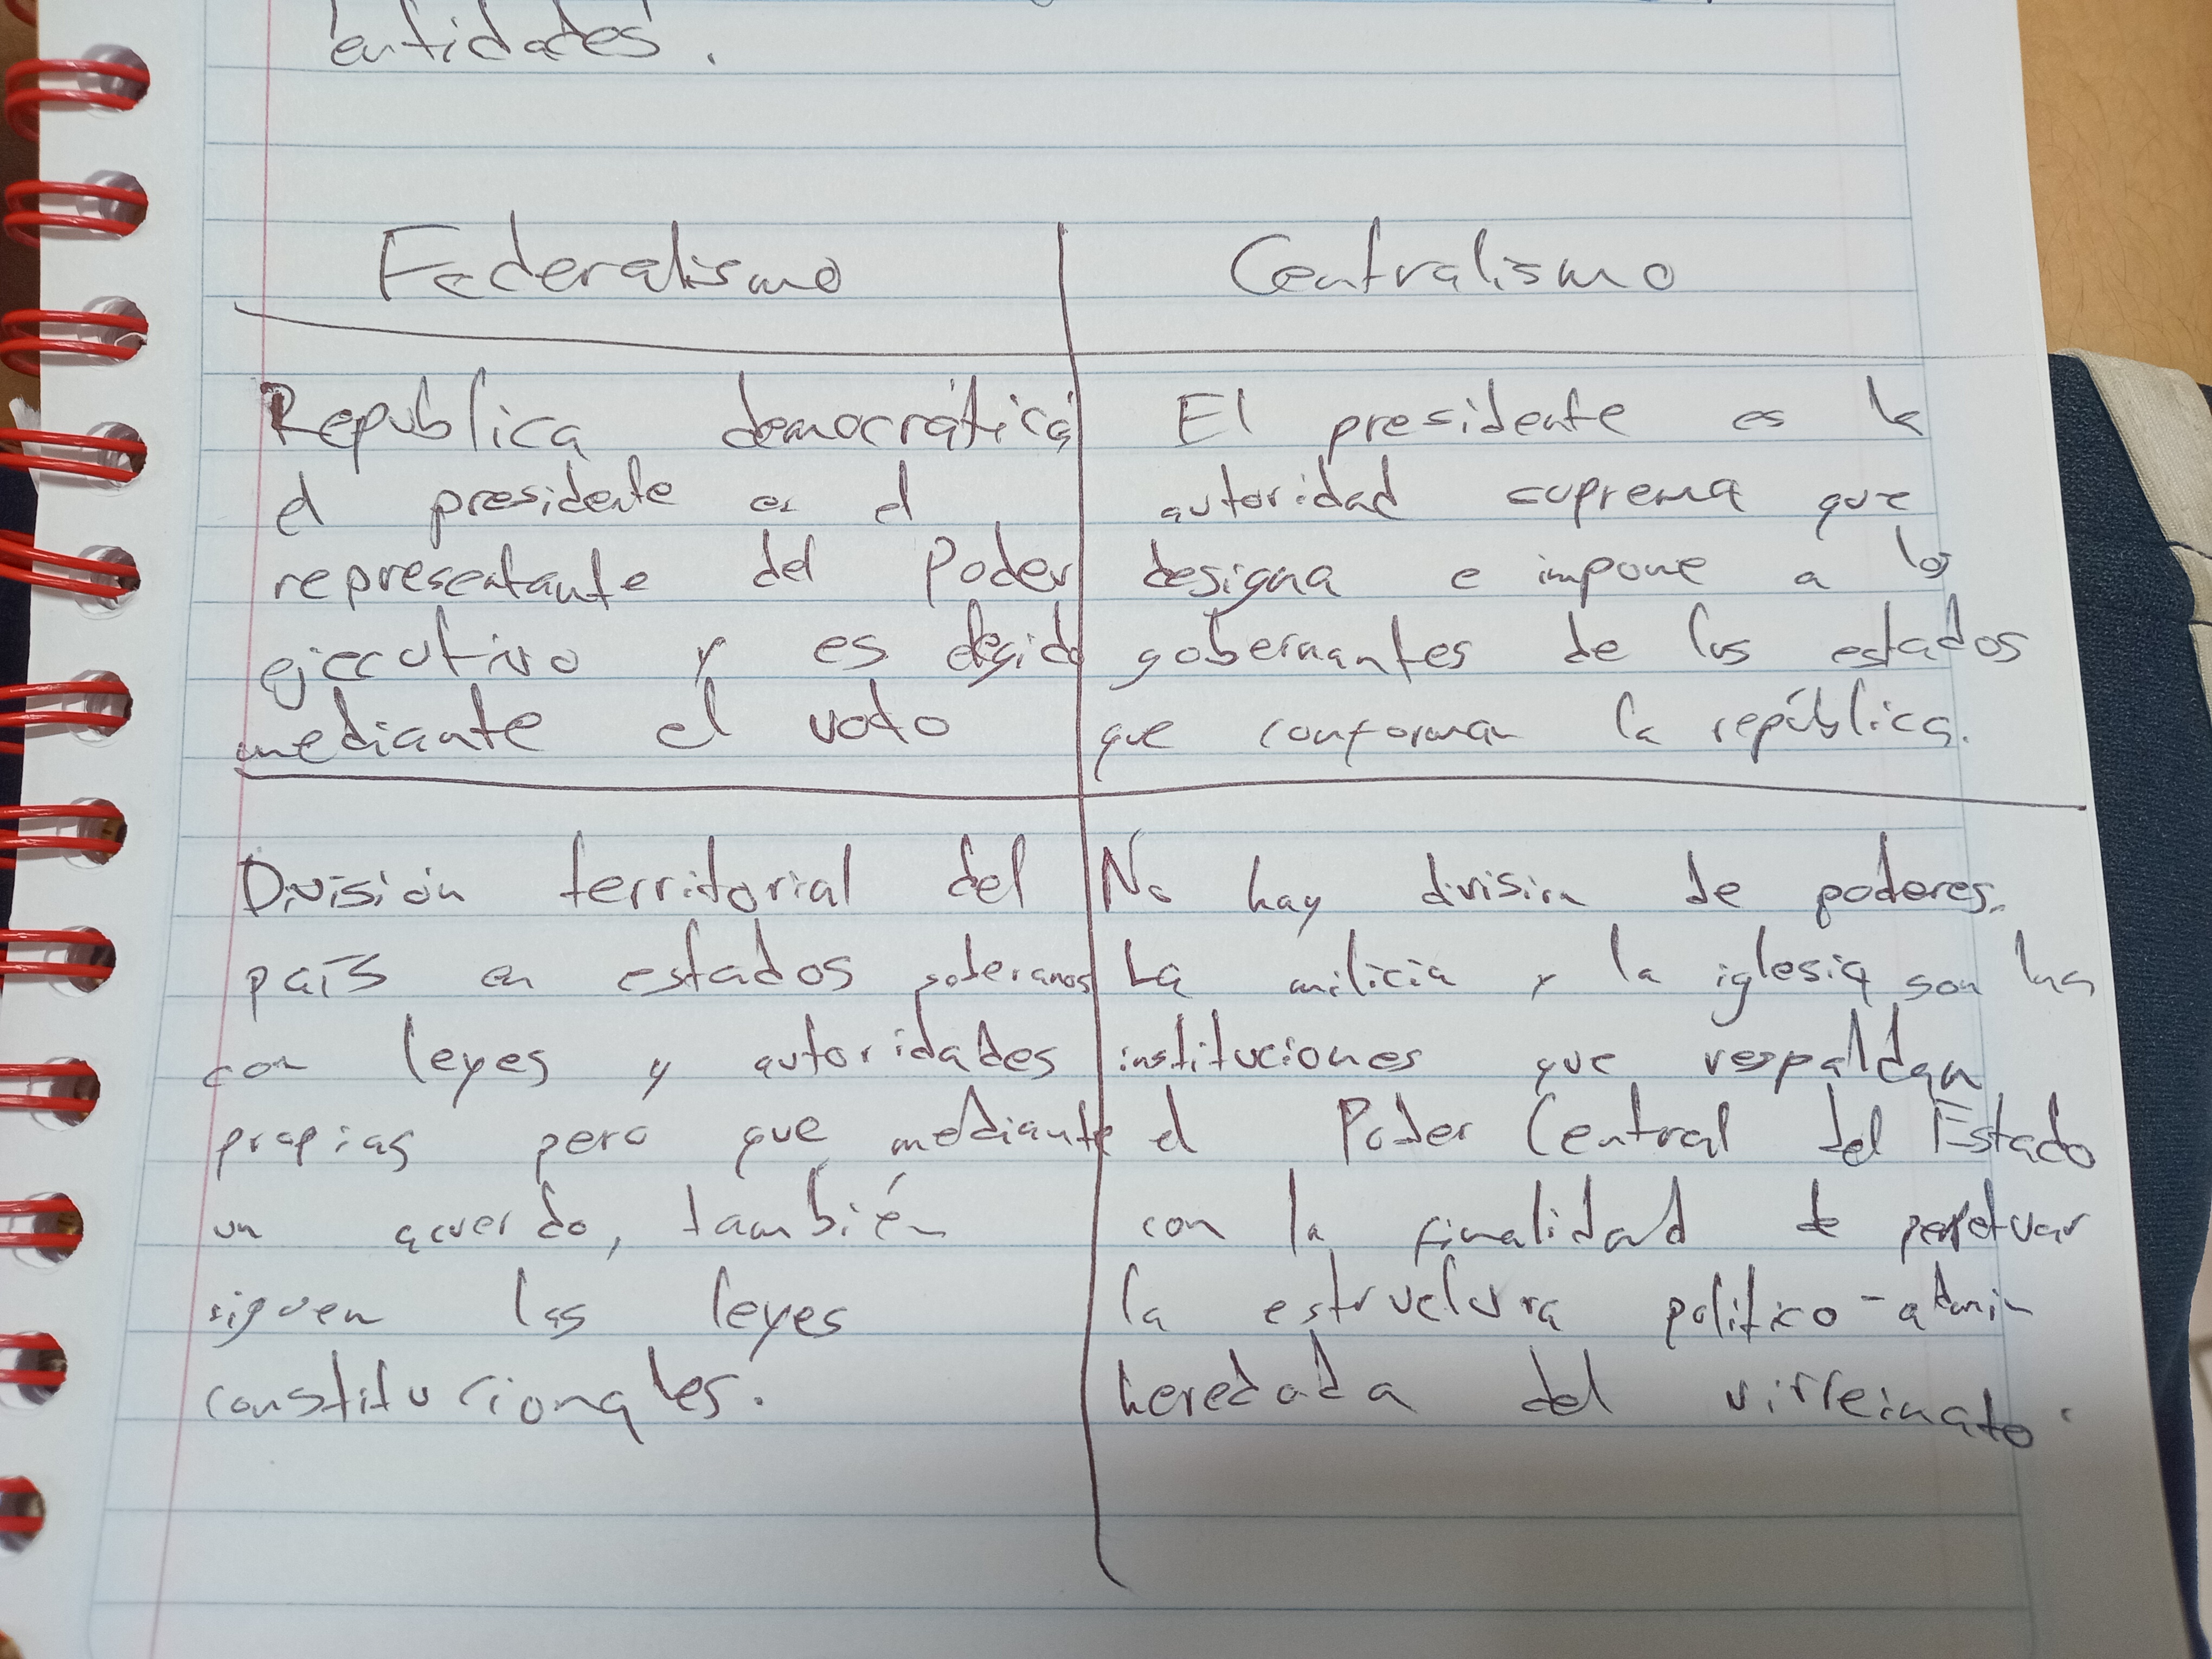 entidades.
Federalismo
Centralismo
Republica democrática
el presidente es el
representante del Poder
ejecutivo y es elegido
mediante el voto
El presidente es la
autoridad suprema que
designa e impone a los
gobernantes de los estados
que conforman la república.
División territorial del
país en estados soberanos
con leyes y autoridades
propias pero que mediante
un acuerdo, también
siguen las leyes
constitucionales.
No hay división de poderes.
La milicia y la iglesia son las
instituciones que respaldan
el Poder Central del Estado
con la finalidad de perpetuar
la estructura político-admin
heredada del virreinato.